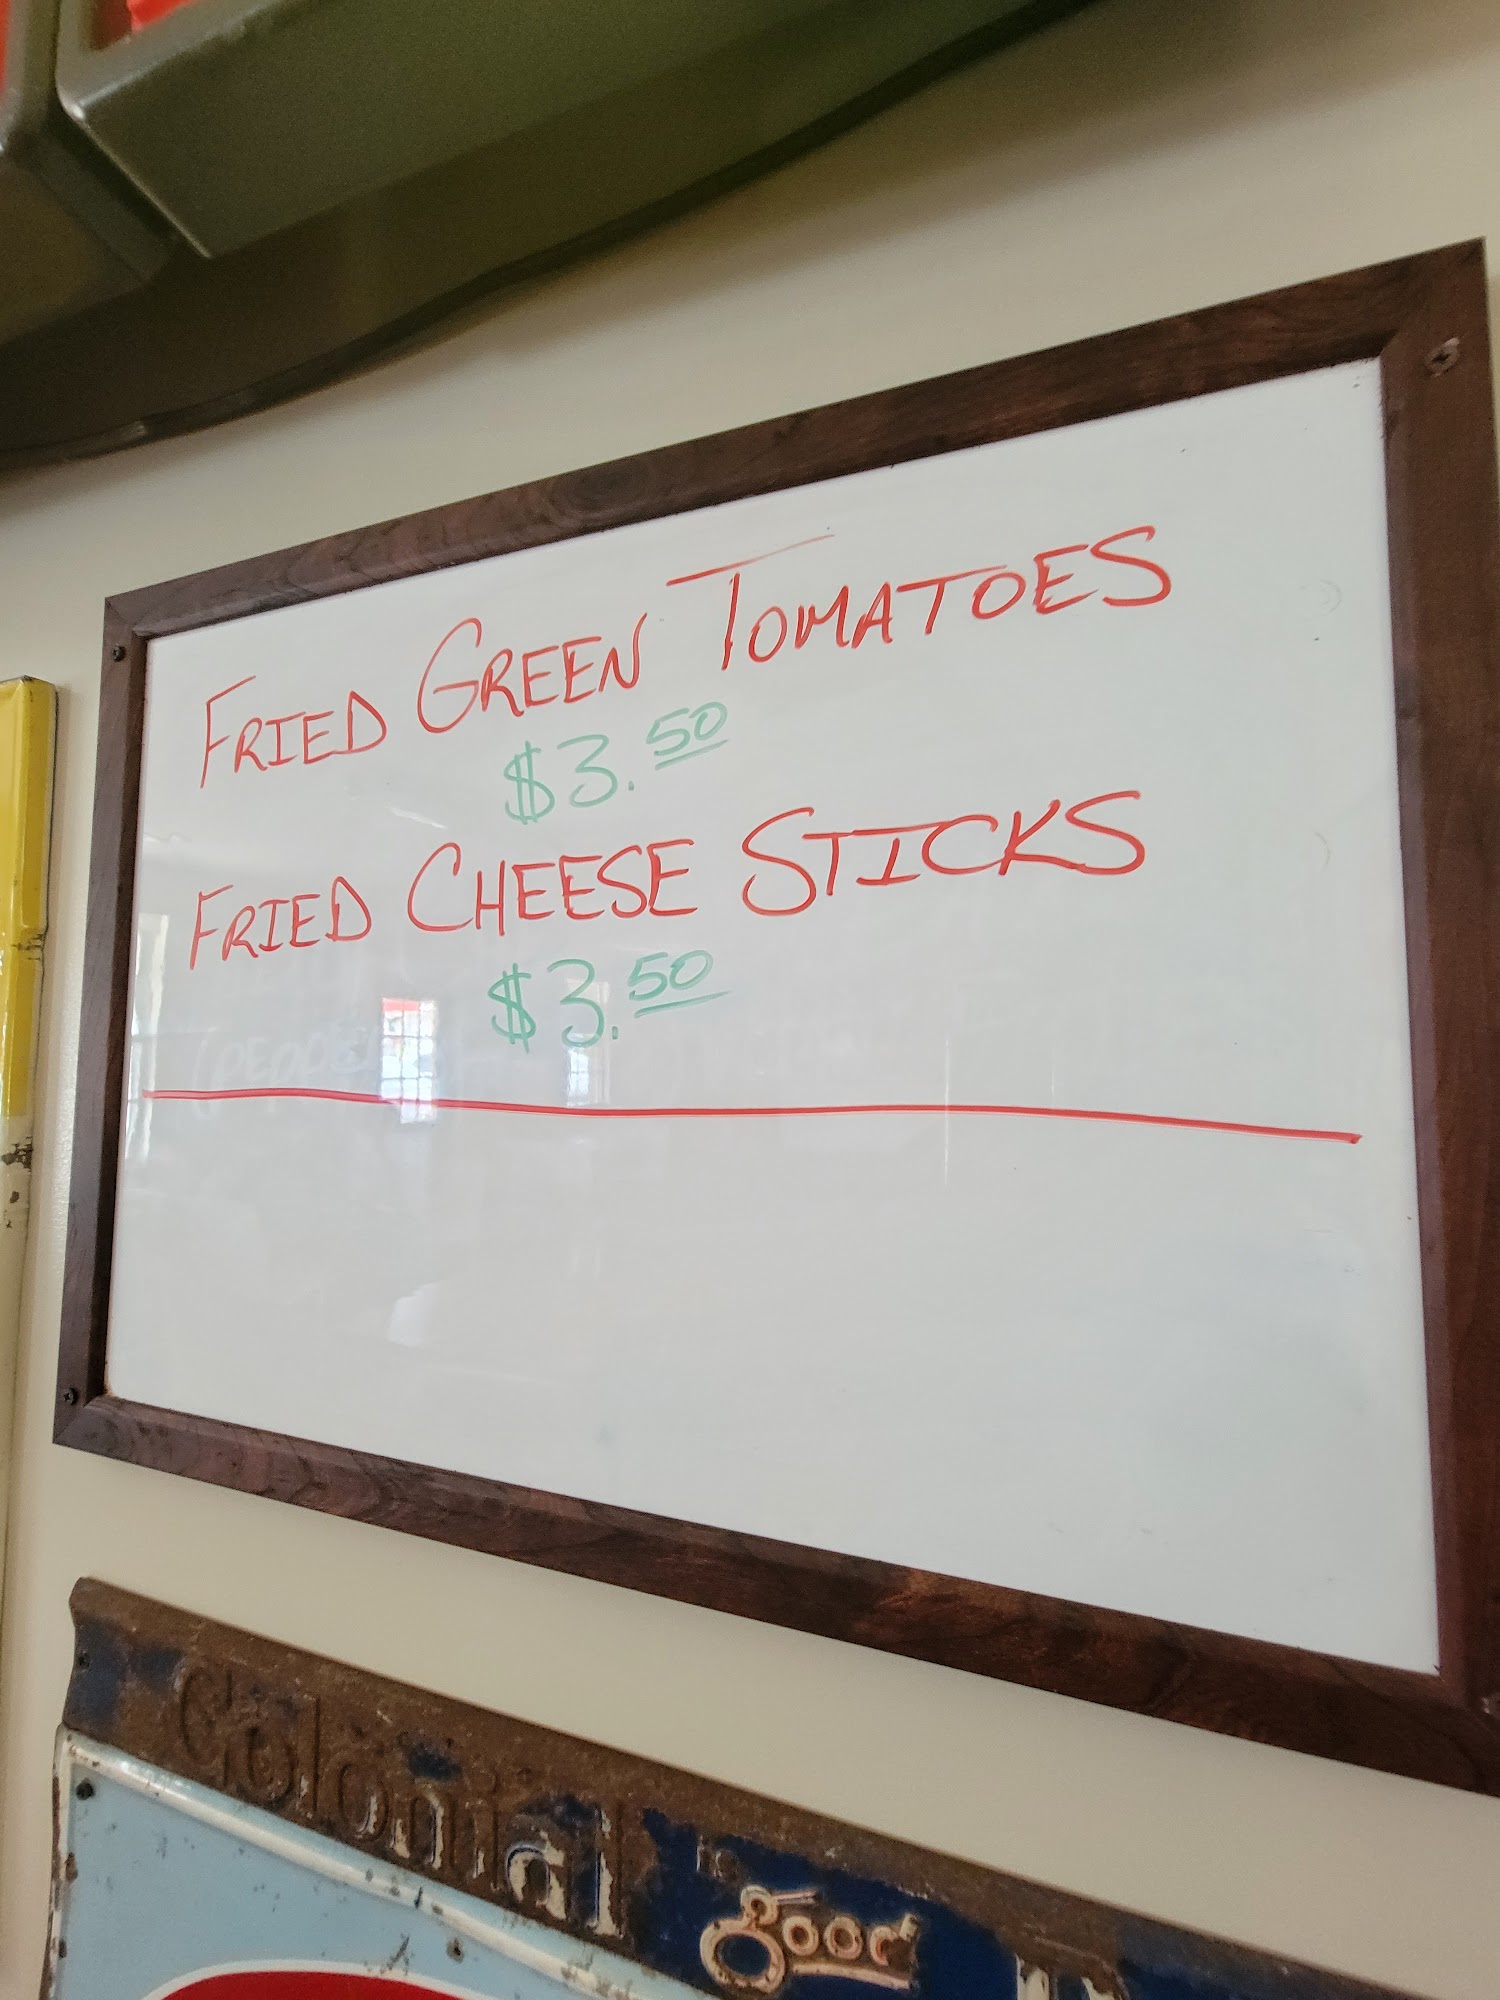 FRIED GREEN TOMATOES
$3.50
FRIED CHEESE STICKS
$3.50
Colonial is good